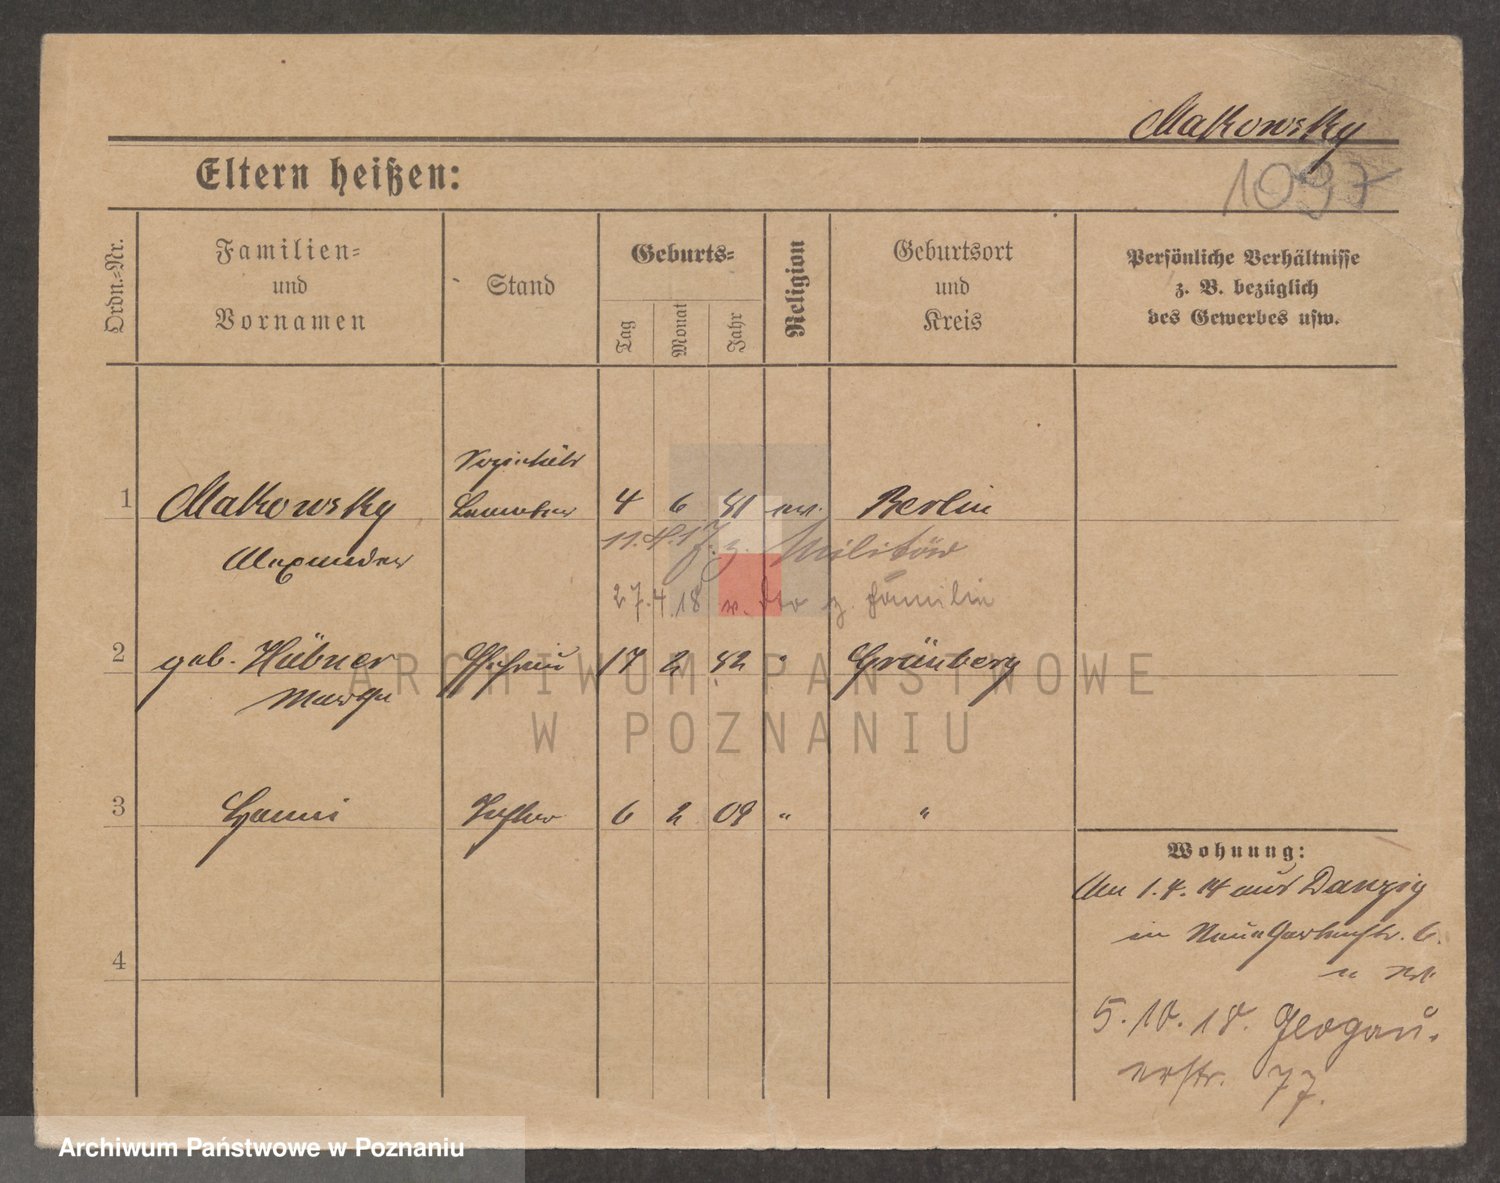 Makowsky
1097
Eltern heißen:
Ordn.-Nr.
Familien-
und
Vornamen
Stand
Geburts-
Tag
Monat
Jahr
Religion
Geburtsort
und
Kreis
Persönliche Verhältnisse
z. B. bezüglich
des Gewerbes usw.
1 Makowsky 4 6 81 ev. Berlin
Alexander
11.4.17 z. z. Militär
27.4.18 v. z. Familie
2 geb. Hübner Ehefrau 17 2 82 " Grünberg
Margr
ARCHIWUM PAŃSTWOWE
W POZNANIU
3 Hanni Tochter 6 2 09 " "
Wohnung:
Am 1.4.14 aus Danzig
in Neue Gartenstr. 6.
4
5.10.18. Glogau.
erstr. 77.
Archiwum Państwowe w Poznaniu